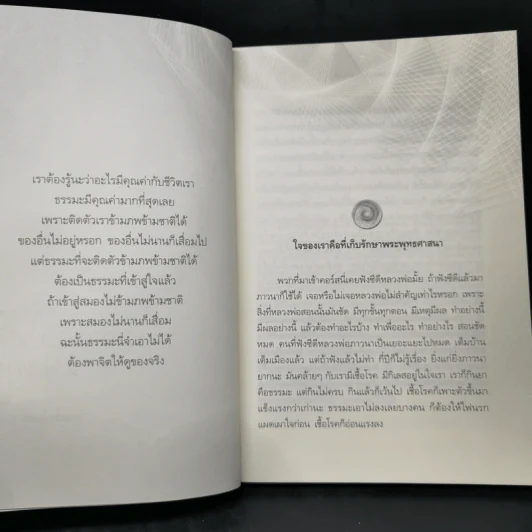 เราต้องรู้นะว่าอะไรมีคุณค่ากับชีวิตเรา
ธรรมะมีคุณค่ามากที่สุดเลย
เพราะติดตัวเราข้ามภพข้ามชาติได้
ของอื่นไม่อยู่หรอก ของอื่นไม่นานก็เสื่อมไป
แต่ธรรมะที่จะติดตัวข้ามภพข้ามชาติได้
ต้องเป็นธรรมะที่เข้าสู่ใจแล้ว
ถ้าเข้าสู่สมองไม่ข้ามภพข้ามชาติ
เพราะสมองไม่นานก็เสื่อม
ฉะนั้นธรรมะนี่จำเอาไม่ได้
ต้องพาจิตให้ดูของจริง
ใจของเราคือที่เก็บรักษาพระพุทธศาสนา
พวกที่มาเข้าคอร์สนี่เคยฟังซีดีหลวงพ่อมั้ย ถ้าฟังซีดีแล้วมา
ภาวนาก็ใช้ได้ เจอหรือไม่เจอหลวงพ่อไม่สำคัญเท่าไรหรอก เพราะ
สิ่งที่หลวงพ่อสอนนั้นมันชัด มีทุกขั้นทุกตอน มีเหตุมีผล ทำอย่างนี้
มีผลอย่างนี้ แล้วต้องทำอะไรบ้าง ทำเพื่ออะไร ทำอย่างไร สอนชัด
หมด คนที่ฟังซีดีหลวงพ่อภาวนาเป็นเยอะแยะไปหมด เต็มบ้าน
เต็มเมืองแล้ว แต่ถ้าฟังแล้วไม่ทำ กี่ปีก็ไม่รู้เรื่อง ยิ่งแก่ยิ่งภาวนา
ยากนะ มันคล้ายๆ กับเรามีเชื้อโรค มีกิเลสอยู่ในใจเรา เราก็กินยา
คือธรรมะ แต่กินไม่ครบ กินแล้วก็เว้นไป เชื้อโรคก็เพาะตัวขึ้นมา
แข็งแรงกว่าเก่านะ ธรรมะเอาไม่ลงเลยบางคน ก็ต้องให้ไฟนรก
แผดเผาใจก่อน เชื้อโรคก็อ่อนแรงลง